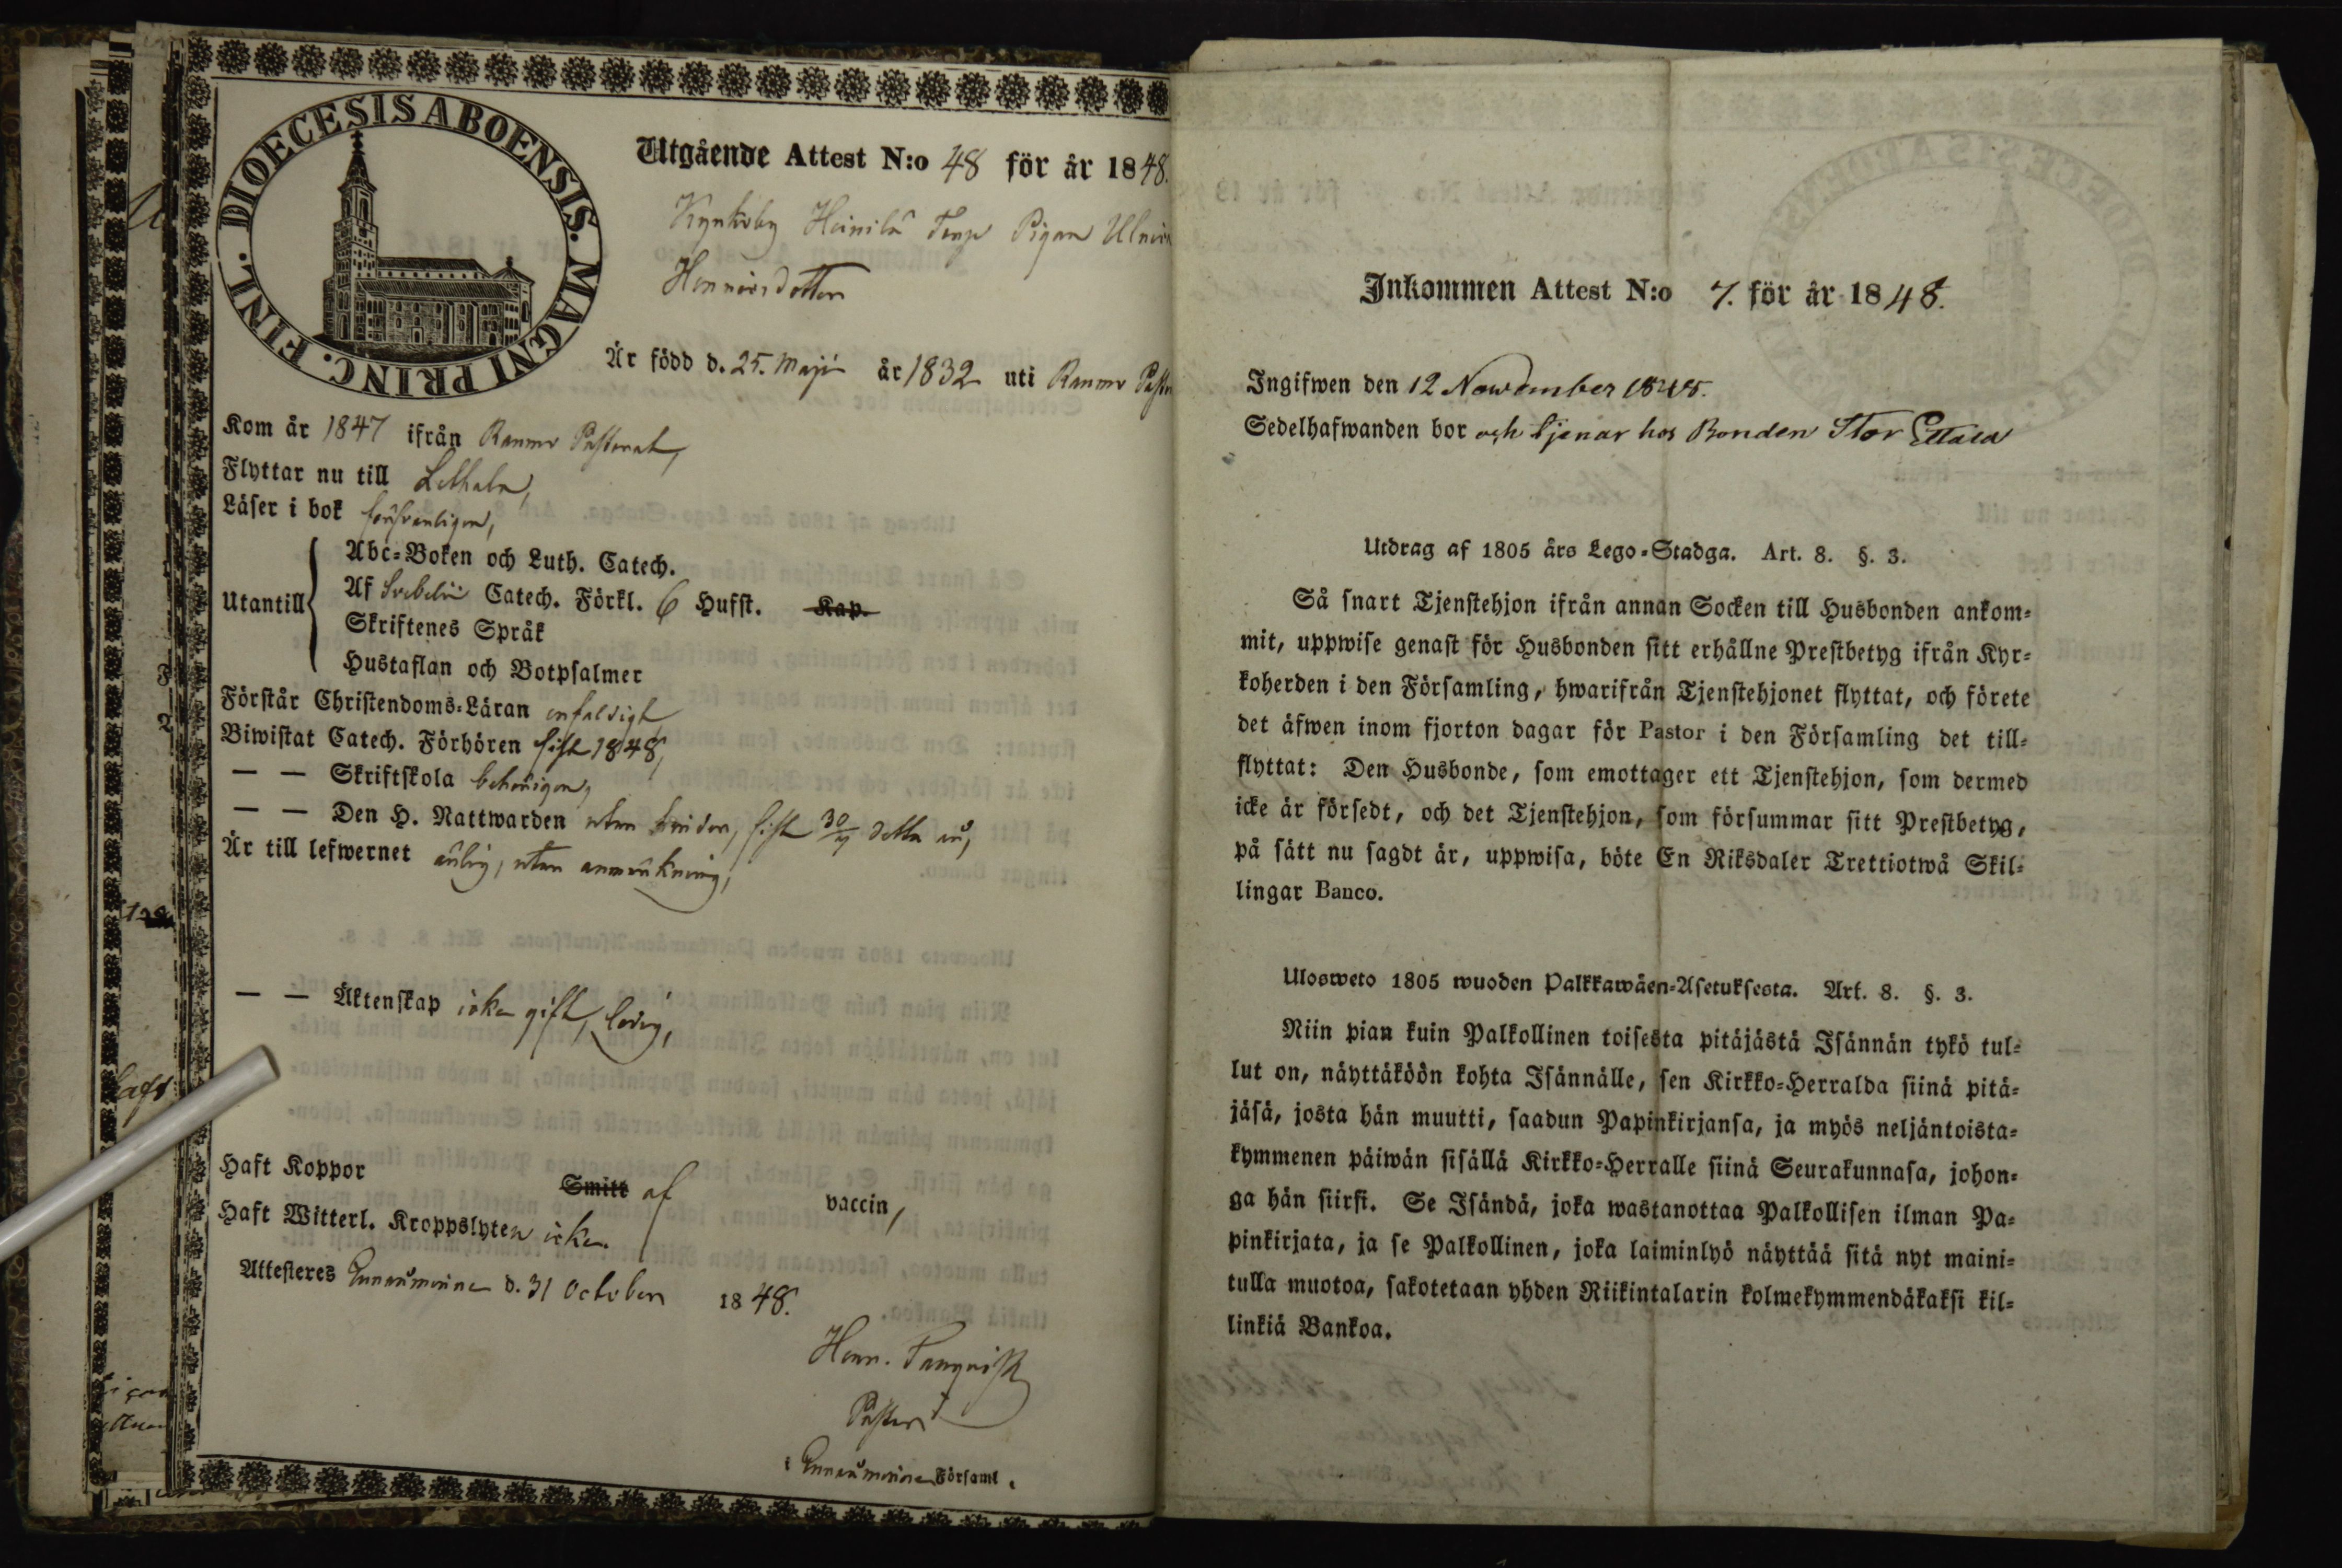 DIOECESIS ABOENSIS. MAGNI PRINC. FINL.
Utgående Attest N:o 48 för år 1848.
Heinilä Pigan
Är född d. 25. Maji år 1832 uti
Kom år 1847 ifrån Raumo Pastorat,
Flyttar nu till
Läser i bok försvarligen,
Utantill
Abc-Boken och Luth. Catech.
Af Svebelii Catech. Förkl. 6 Hufst. Kap.
Skriftenes Språk
Hustaflan och Botpsalmer
Förstår Christendoms-Läran enfaldigt
Biwistat Catech. Förhören sist 1848,
— — Skriftskola behörigen,
— — Den H. Nattwarden utan hinder, sist detta år,
Är till lefwernet ärlig, utan anmärkning,
— — Äktenskap icke gift, ledig,
Haft Koppor Smitt af vaccin,
Haft Witterl. Kroppslyten icke.
Attesteres d. 31 October 1848.
Henr.
Pastor
i Församl.
Inkommen Attest N:o 7. för år 1848.
Ingifwen den 12 Nowember 1848.
Sedelhafwanden bor och tjenar hos Bonden Stor
Utdrag af 1805 års Lego-Stadga. Art. 8. §. 3.
Så snart Tjenstehjon ifrån annan Socken till Husbonden ankom-
mit, uppwise genast för Husbonden sitt erhållne Prestbetyg ifrån Kyr-
koherden i den Församling, hwarifrån Tjenstehjonet flyttat, och förete
det äfwen inom fjorton dagar för Pastor i den Församling det till-
flyttat: Den Husbonde, som emottager ett Tjenstehjon, som dermed
icke är försedt, och det Tjenstehjon, som försummar sitt Prestbetyg,
på sätt nu sagdt är, uppwisa, böte En Riksdaler Trettiotwå Skil-
lingar Banco.
Ulosweto 1805 wuoden Palkkawäen-Asetuksesta. Art. 8. §. 3.
Niin pian kuin Palkollinen toisesta pitäjästä Isännän tykö tul-
lut on, näyttäköön kohta Isännälle, sen Kirkko-Herralda siinä pitä-
jäsä, josta hän muutti, saadun Papinkirjansa, ja myös neljäntoista-
kymmenen päiwän sisällä Kirkko-Herralle siinä Seurakunnasa, johon-
ga hän siirsi. Se Isändä, joka wastanottaa Palkollisen ilman Pa-
pinkirjata, ja se Palkollinen, joka laiminlyö näyttää sitä nyt maini-
tulla muotoa, sakotetaan yhden Riikintalarin kolmekymmendäkaksi kil-
linkiä Bankoa.